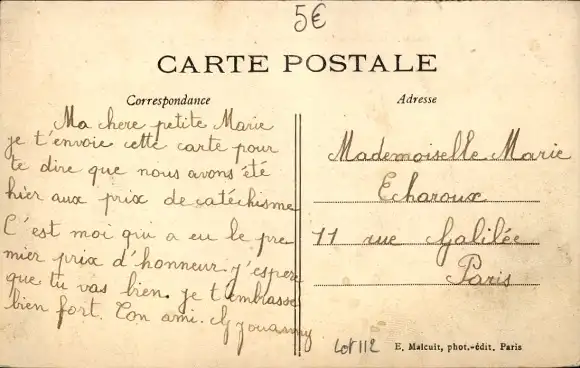 5€
CARTE POSTALE
Correspondance
Ma chere petite Marie
je t'envoie cette carte pour
te dire que nous avons été
hier aux prix de catéchisme
C'est moi qui a eu le pre
mier prix d'honneur j'espere
que tu vas bien. je t'embrasse
bien fort. Ton ami.
Adresse
Mademoiselle Marie
Echaroux
11 rue Galilée
Paris
Lot 112
E. Malcuit, phot.-édit. Paris